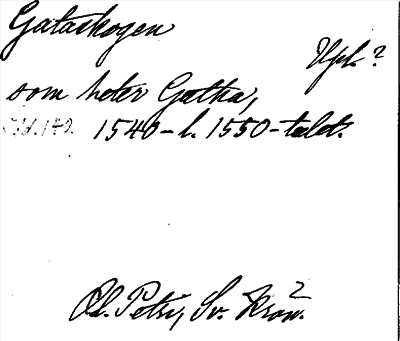 Gataskogen
Upl.?
som heter Gatha,
1540- l. 1550-talet.
Ol. Petri, Sv. Krön.²